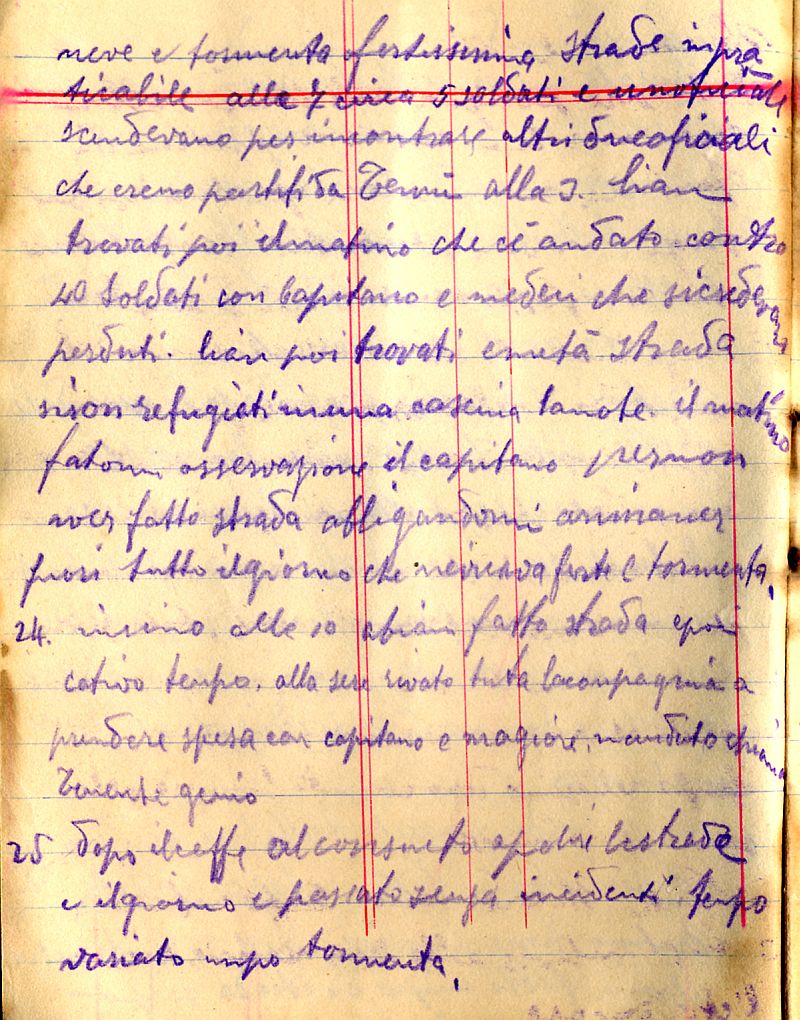 neve e tormenta fortissima strade inpra
ticabile alle 7 circa 5 soldati e unoficiale
scendevano per incontrare altri dueoficiali
che ereno partiti da alla 3. lian
trovati poi ilmatino che cé andato contro
40 Soldati con Capitano e medeci che sicredevano
perduti. lian poi trovati emetà strada
sison refugiati inuna cascina lanote. il matino
fatomi osservazione il capitano pernon
aver fatto strada obligandomi arimaner
fuori tutto ilgiorno che neivicava forte e tormenta,
24. insino alle 10 abiam fatto strada epoi
cativo tempo. alla sera rivato tuta lacompagnia a
prendere spesa con capitano e magiore,
Tenente genio
25 dopo ilcaffe alconsueto aprire lestrade
e ilgiorno e passato senza incidenti tenpo
variato unpo tormenta,